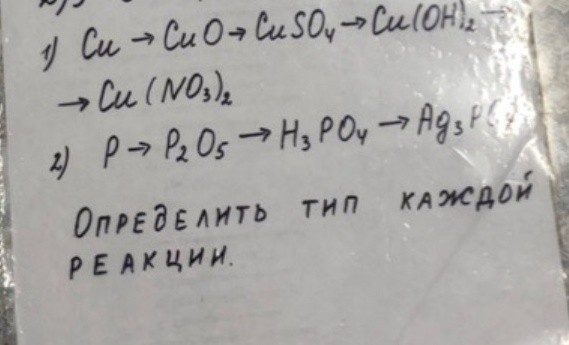 1) Cu → CuO → CuSO₄ → Cu(OH)₂ →
→ Cu(NO₃)₂
2) P → P₂O₅ → H₃PO₄ → Ag₃PO₄
ОПРЕДЕЛИТЬ ТИП КАЖДОЙ
РЕАКЦИИ.